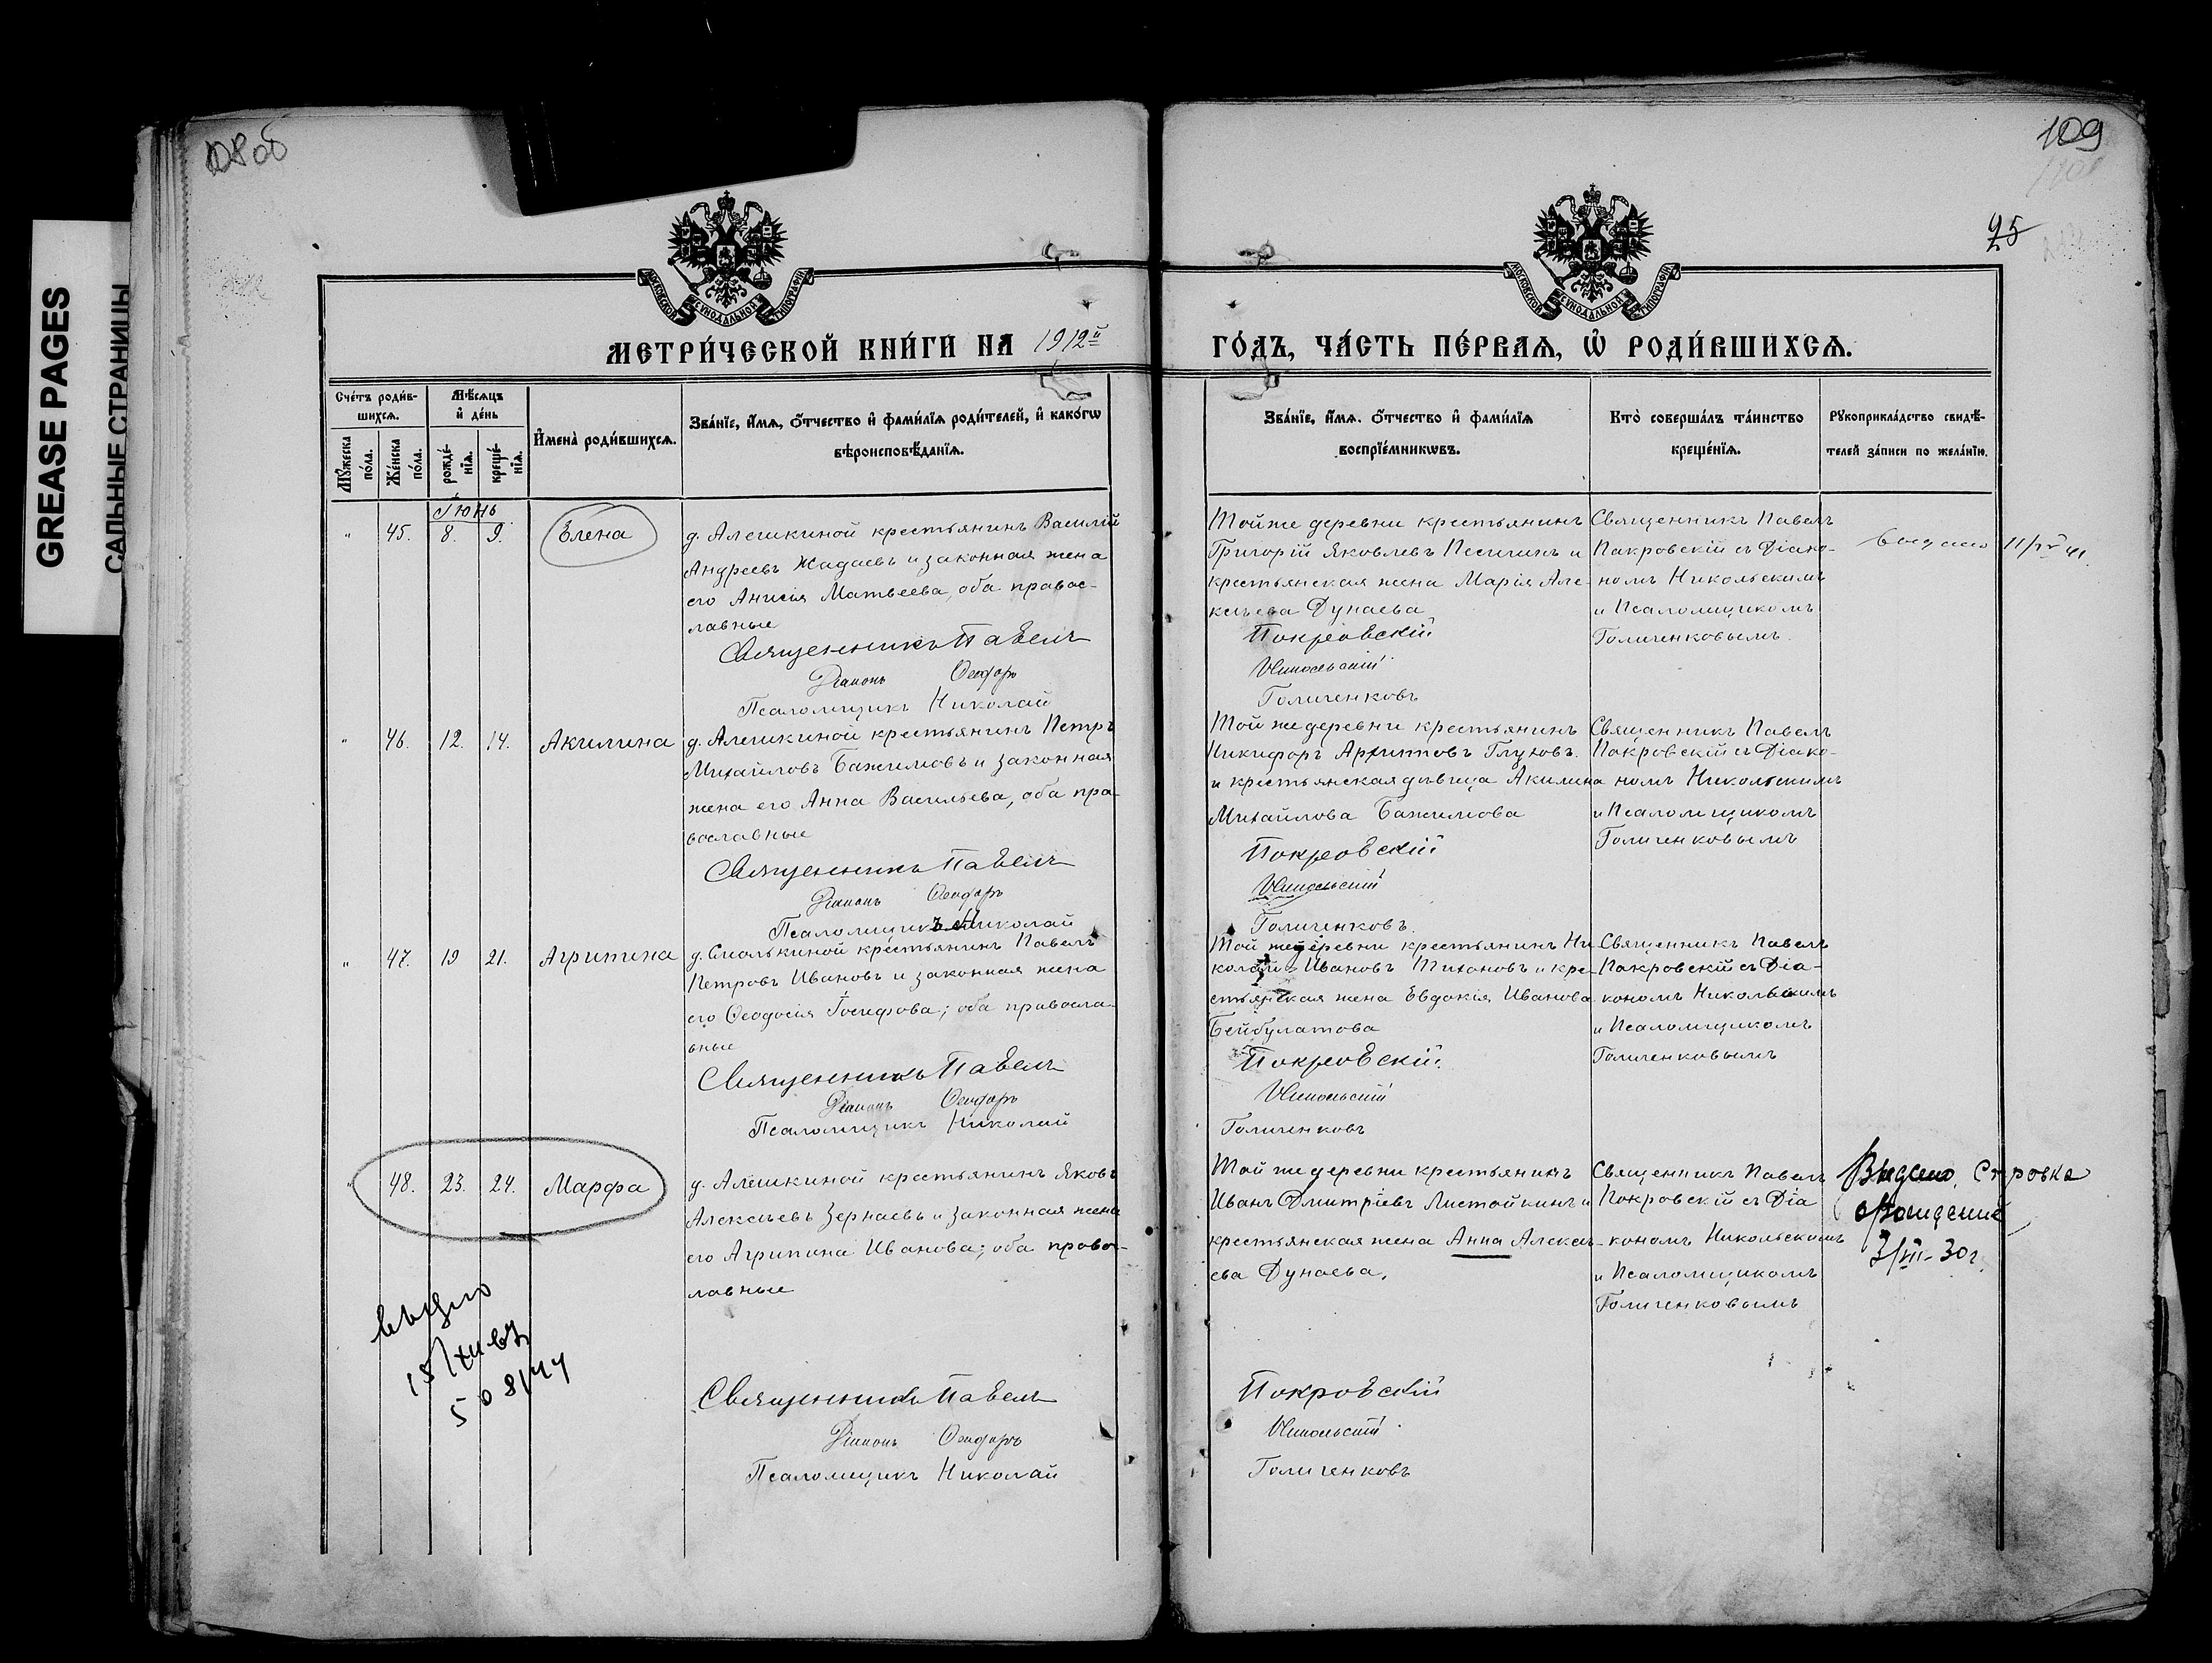 GREASE PAGES
САЛЬНЫЕ СТРАНИЦЫ
108 об
109
25
МОСКОВСКОЙ СѴНОДАЛЬНОЙ ТИПОГРАФІИ
МОСКОВСКОЙ СѴНОДАЛЬНОЙ ТИПОГРАФІИ
МЕТРИ́ЧЕСКОЙ КНИ́ГИ НА 1912й
ГО́ДЪ, ЧА́СТЬ ПЕ́РВАѦ, Ѡ РОДИ́ВШИХСѦ.
Сче́тъ роди́в-
шихсѧ.
Мꙋ́жеска
по́ла.
Же́нска
по́ла.
Мѣ́сѧцъ
и де́нь
рожде́-
нїѧ.
креще́-
нїѧ.
И҆мена̀ роди́вшихсѧ.
Зва́нїе, и҆́мѧ, ѻ҆́тчество и҆ фами́лїѧ роди́телей, и҆ како́гѡ
вѣроисповѣ́данїѧ.
Зва́нїе, и҆́мѧ, ѻ҆́тчество и҆ фами́лїѧ
воспрїе́мникѡвъ.
Кто̀ соверша́лъ та́инство
креще́нїѧ.
Рꙋкоприкла́дство свидѣ́-
телей за́писи по жела́нїю.
Іюнь
" 45. 8. 9. Елена
д. Алешкиной крестьянинъ Василій
Андреевъ Жадаевъ и законная жена
его Анисія Матвеева, оба правос-
лавные
Священникъ Павелъ
Діаконъ Ѳеодоръ
Псаломщикъ Николай
Тойже деревни крестьянинъ
Григорій Яковлевъ Песинкъ и
крестьянская жена Марія Але-
ксѣева Дунаева
Покровскій
Никольскій
Голиченковъ
Священникъ Павелъ
Покровскій съ Діако-
номъ Никольскимъ
и Псаломщикомъ
Голиченковымъ.
выдано 11/IV 41.
" 46. 12. 14. Акилина
д. Алешкиной крестьянинъ Петръ
Михайловъ Бажимовъ и законная
жена его Анна Васильева, оба пра-
вославные
Священникъ Павелъ
Діаконъ Ѳеодоръ
Псаломщикъ Николай
Той же деревни крестьянинъ
Никифоръ Архиповъ Глуховъ.
и крестьянская дѣвица Акилина
Михайлова Бажимова
Покровскій
Никольскій
Голиченковъ.
Священникъ Павелъ
Покровскій съ Діако-
номъ Никольскимъ
и Псаломщикомъ
Голиченковымъ
" 47. 19 21. Агрипина
д. Смолькиной крестьянинъ Павелъ
Петровъ Ивановъ и законная жена
его Ѳеодосія Іосифова; оба правосла-
вные
Священникъ Павелъ
Діаконъ Ѳеодоръ
Псаломщикъ Николай
Той же деревни крестьянинъ Ни-
колай Ивановъ Тихоновъ и кре-
стьянская жена Евдокія Иванова
Бейбулатова
Покровскій.
Никольскій
Голиченковъ
Священникъ Павелъ
Покровскій съ Діа-
кономъ Никольскимъ
и Псаломщикомъ
Голиченковымъ
" 48. 23. 24. Марфа
д. Алешкиной крестьянинъ Яковъ
Алексѣевъ Зернаевъ и законная жена
его Агрипина Иванова; оба правос-
лавные
Священникъ Павелъ
Діаконъ Ѳеодоръ
Псаломщикъ Николай
Той же деревни крестьянинъ
Иванъ Дмитріевъ Листойкинъ и
крестьянская жена Анна Алексѣ-
ева Дунаева.
Покровскій
Никольскій
Голиченковъ
Священникъ Павелъ
Покровскій съ Діа
кономъ Никольскомъ
и Псаломщикомъ
Голиченковымъ
Выдано. Справка
о рождении
3/VII-30 г.
508/44